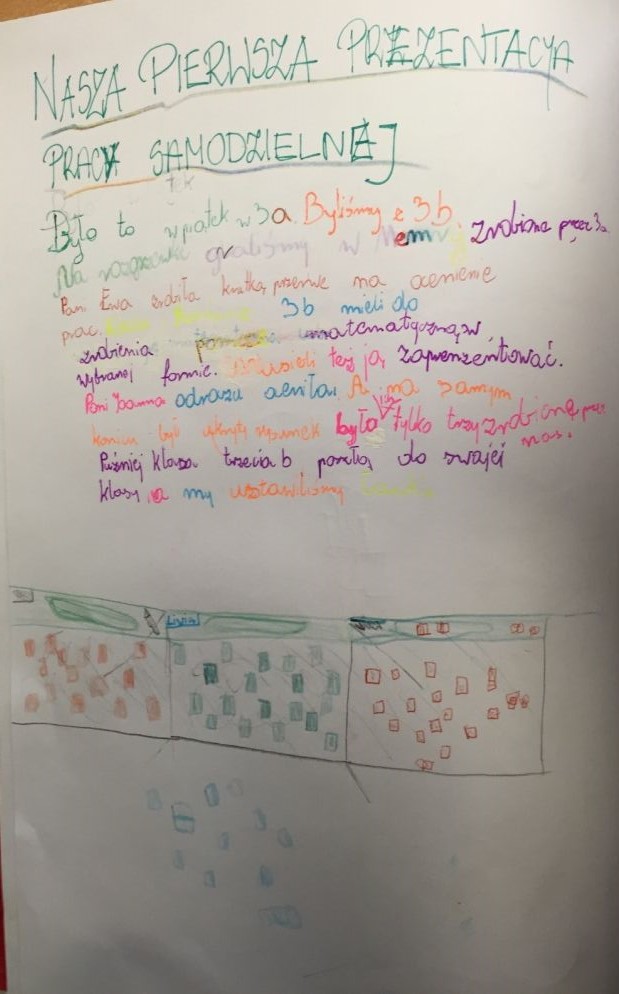 NASZA PIERWSZA PREZENTACJA
PRACY SAMODZIELNEJ
Było to w piątek w 3a. Byliśmy z 3b.
Na rozgrzewkę graliśmy w Memory zrobione przez 3a.
Pani Ewa zrobiła krutką przerwe na ocenienie
prac. 3b mieli do
zrobienia matematyczną w
wybranej formie. Musieli też ją zaprezentować.
Pani Joanna odrazu oceniła. A na samym
koniuu był ukryty rysunek było ich tylko trzy zrobione przez nas.
Puźniej klasa trzecia b poszła do swojej
klasy, a my ustawiliśmy ławki.